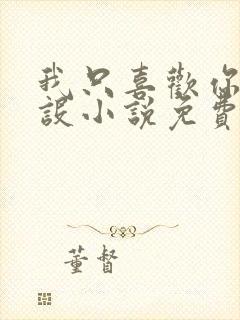 我只喜歡你
設小說免費
董督